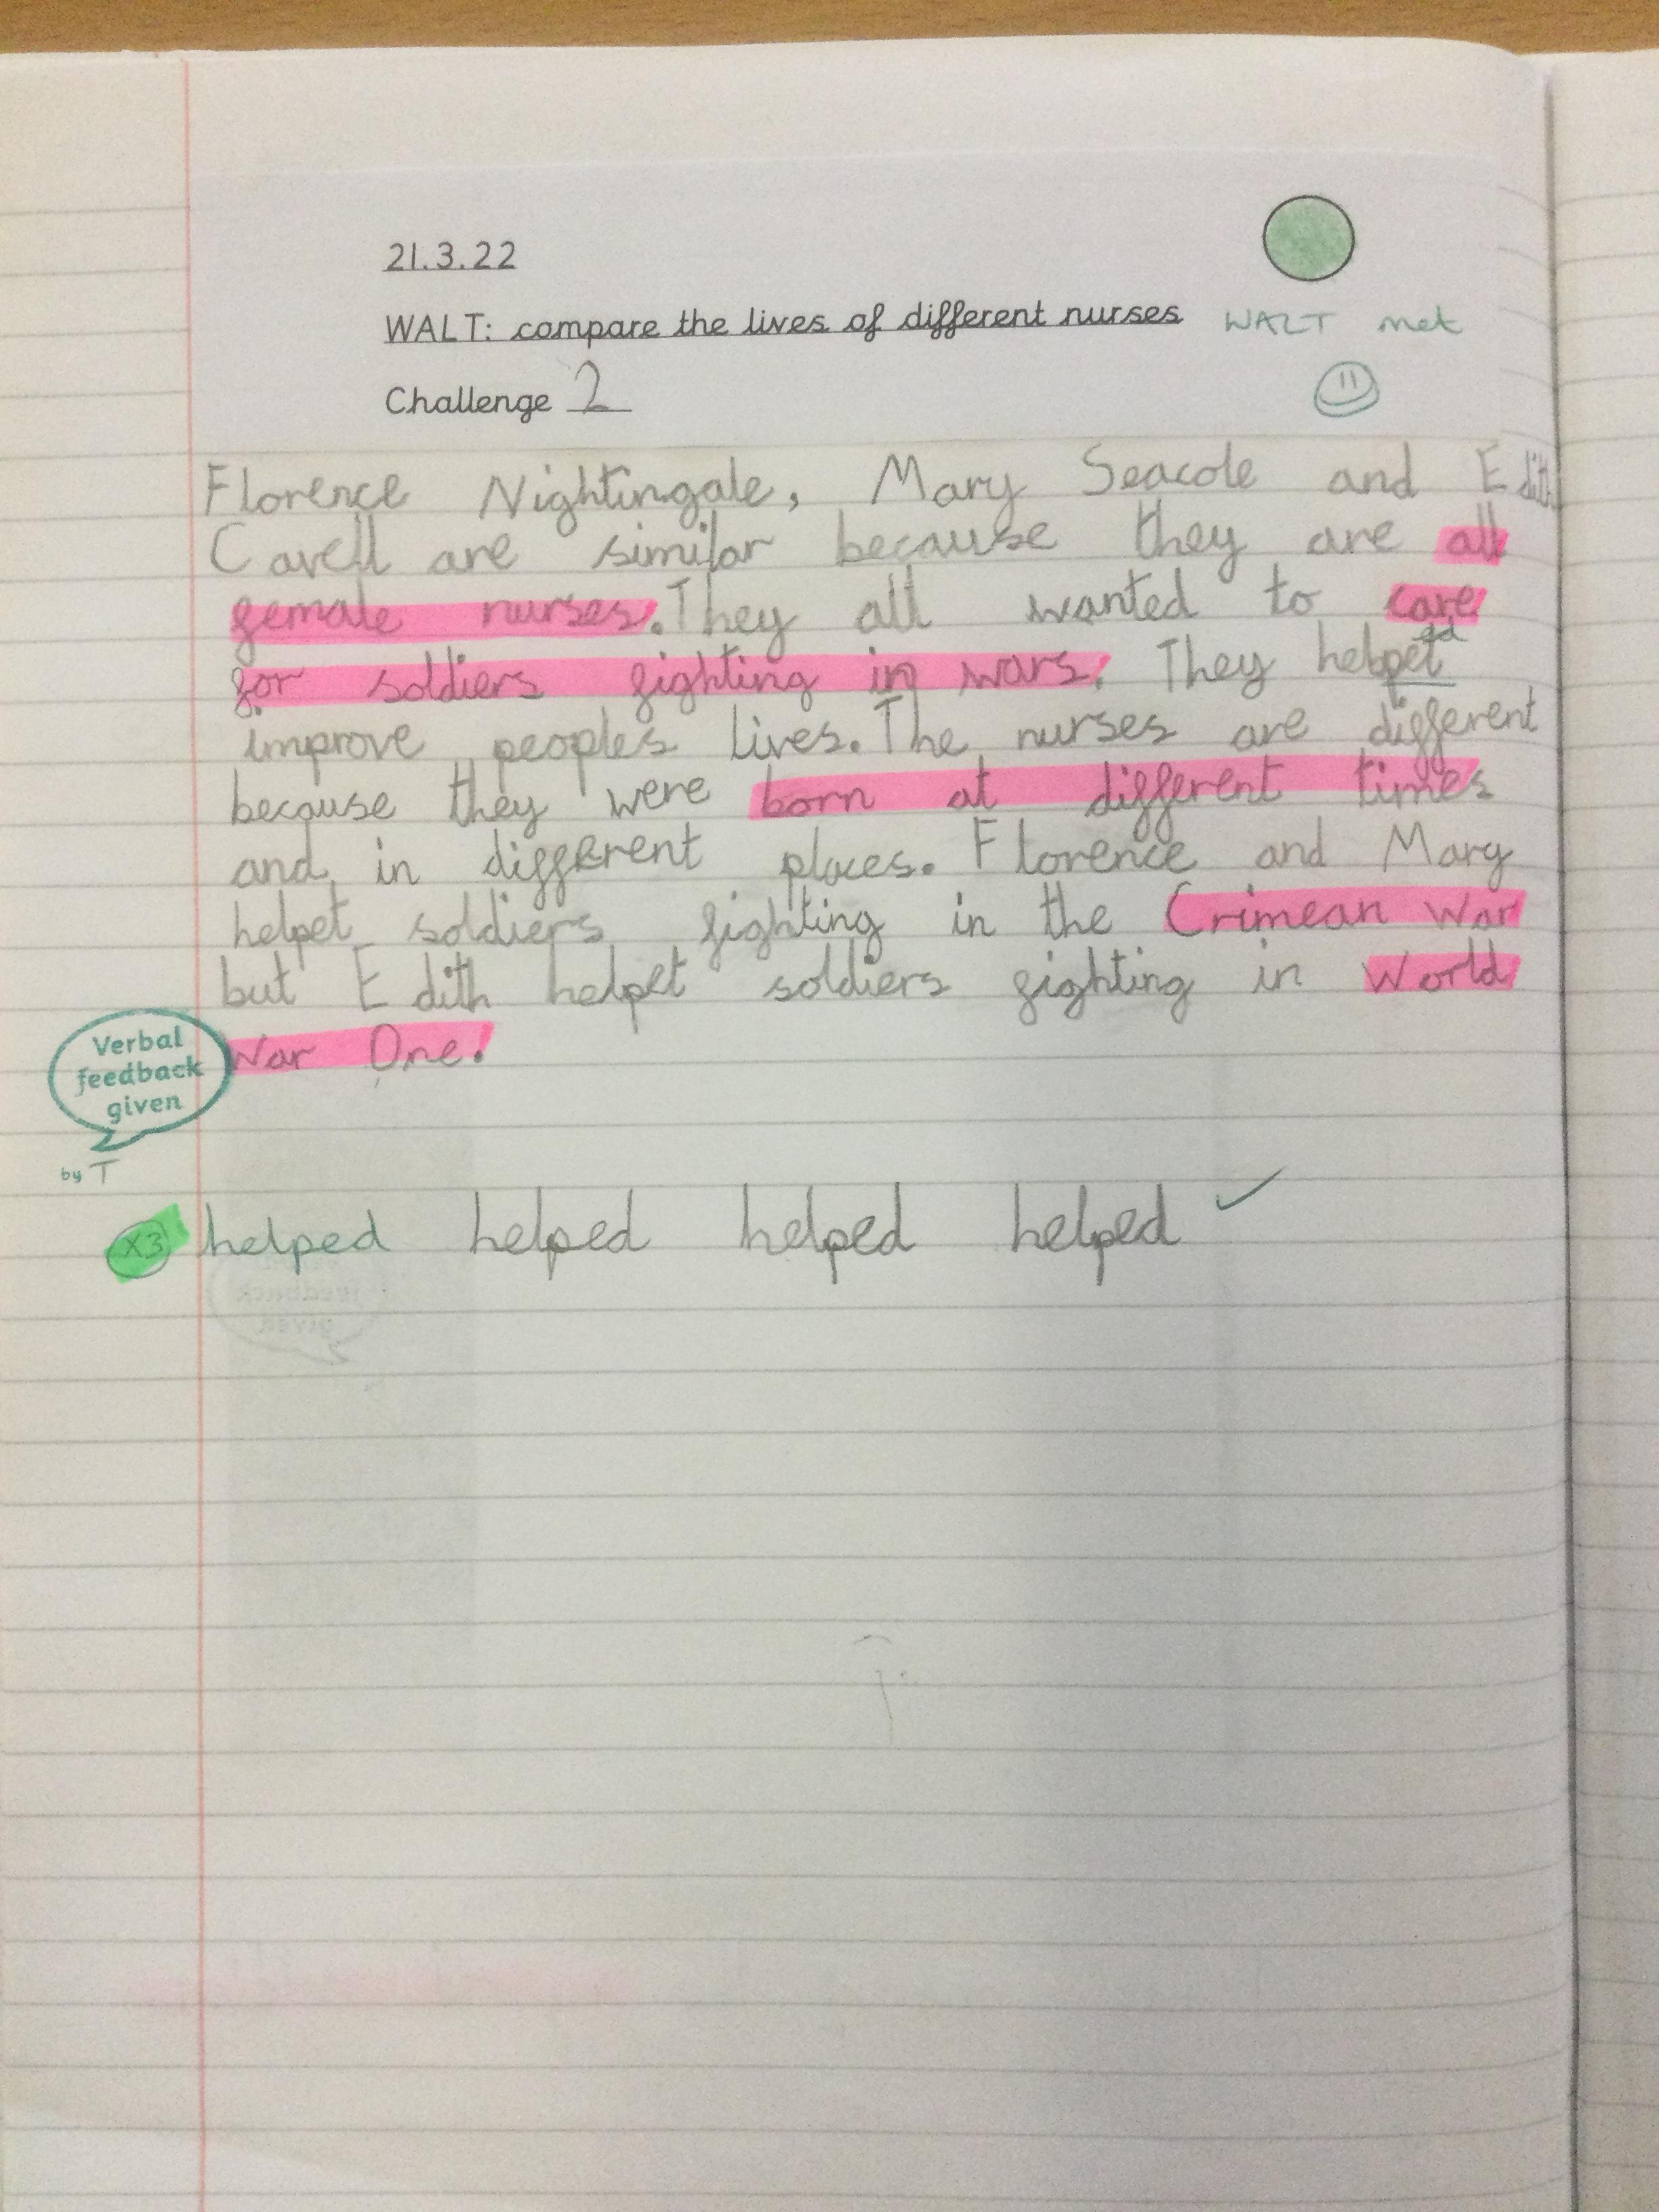 21.3.22
WALT: compare the lives of different nurses WALT met
Challenge 2
Florence Nightingale, Mary Seacole and Edith
Cavell are similar because they are all
female nurses. They all wanted to care
for soldiers fighting in wars. They helpet ed
improve peoples lives. The nurses are different
because they were born at different times
and in different places. Florence and Mary
helpet soldiers fighting in the Crimean War
but Edith helpet soldiers fighting in World
War One.
Verbal
feedback
given
by T
x3 helped helped helped helped